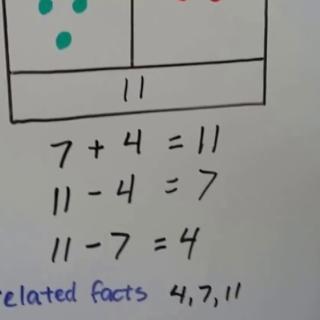 11
7 + 4 = 11
11 - 4 = 7
11 - 7 = 4
elated facts 4,7,11